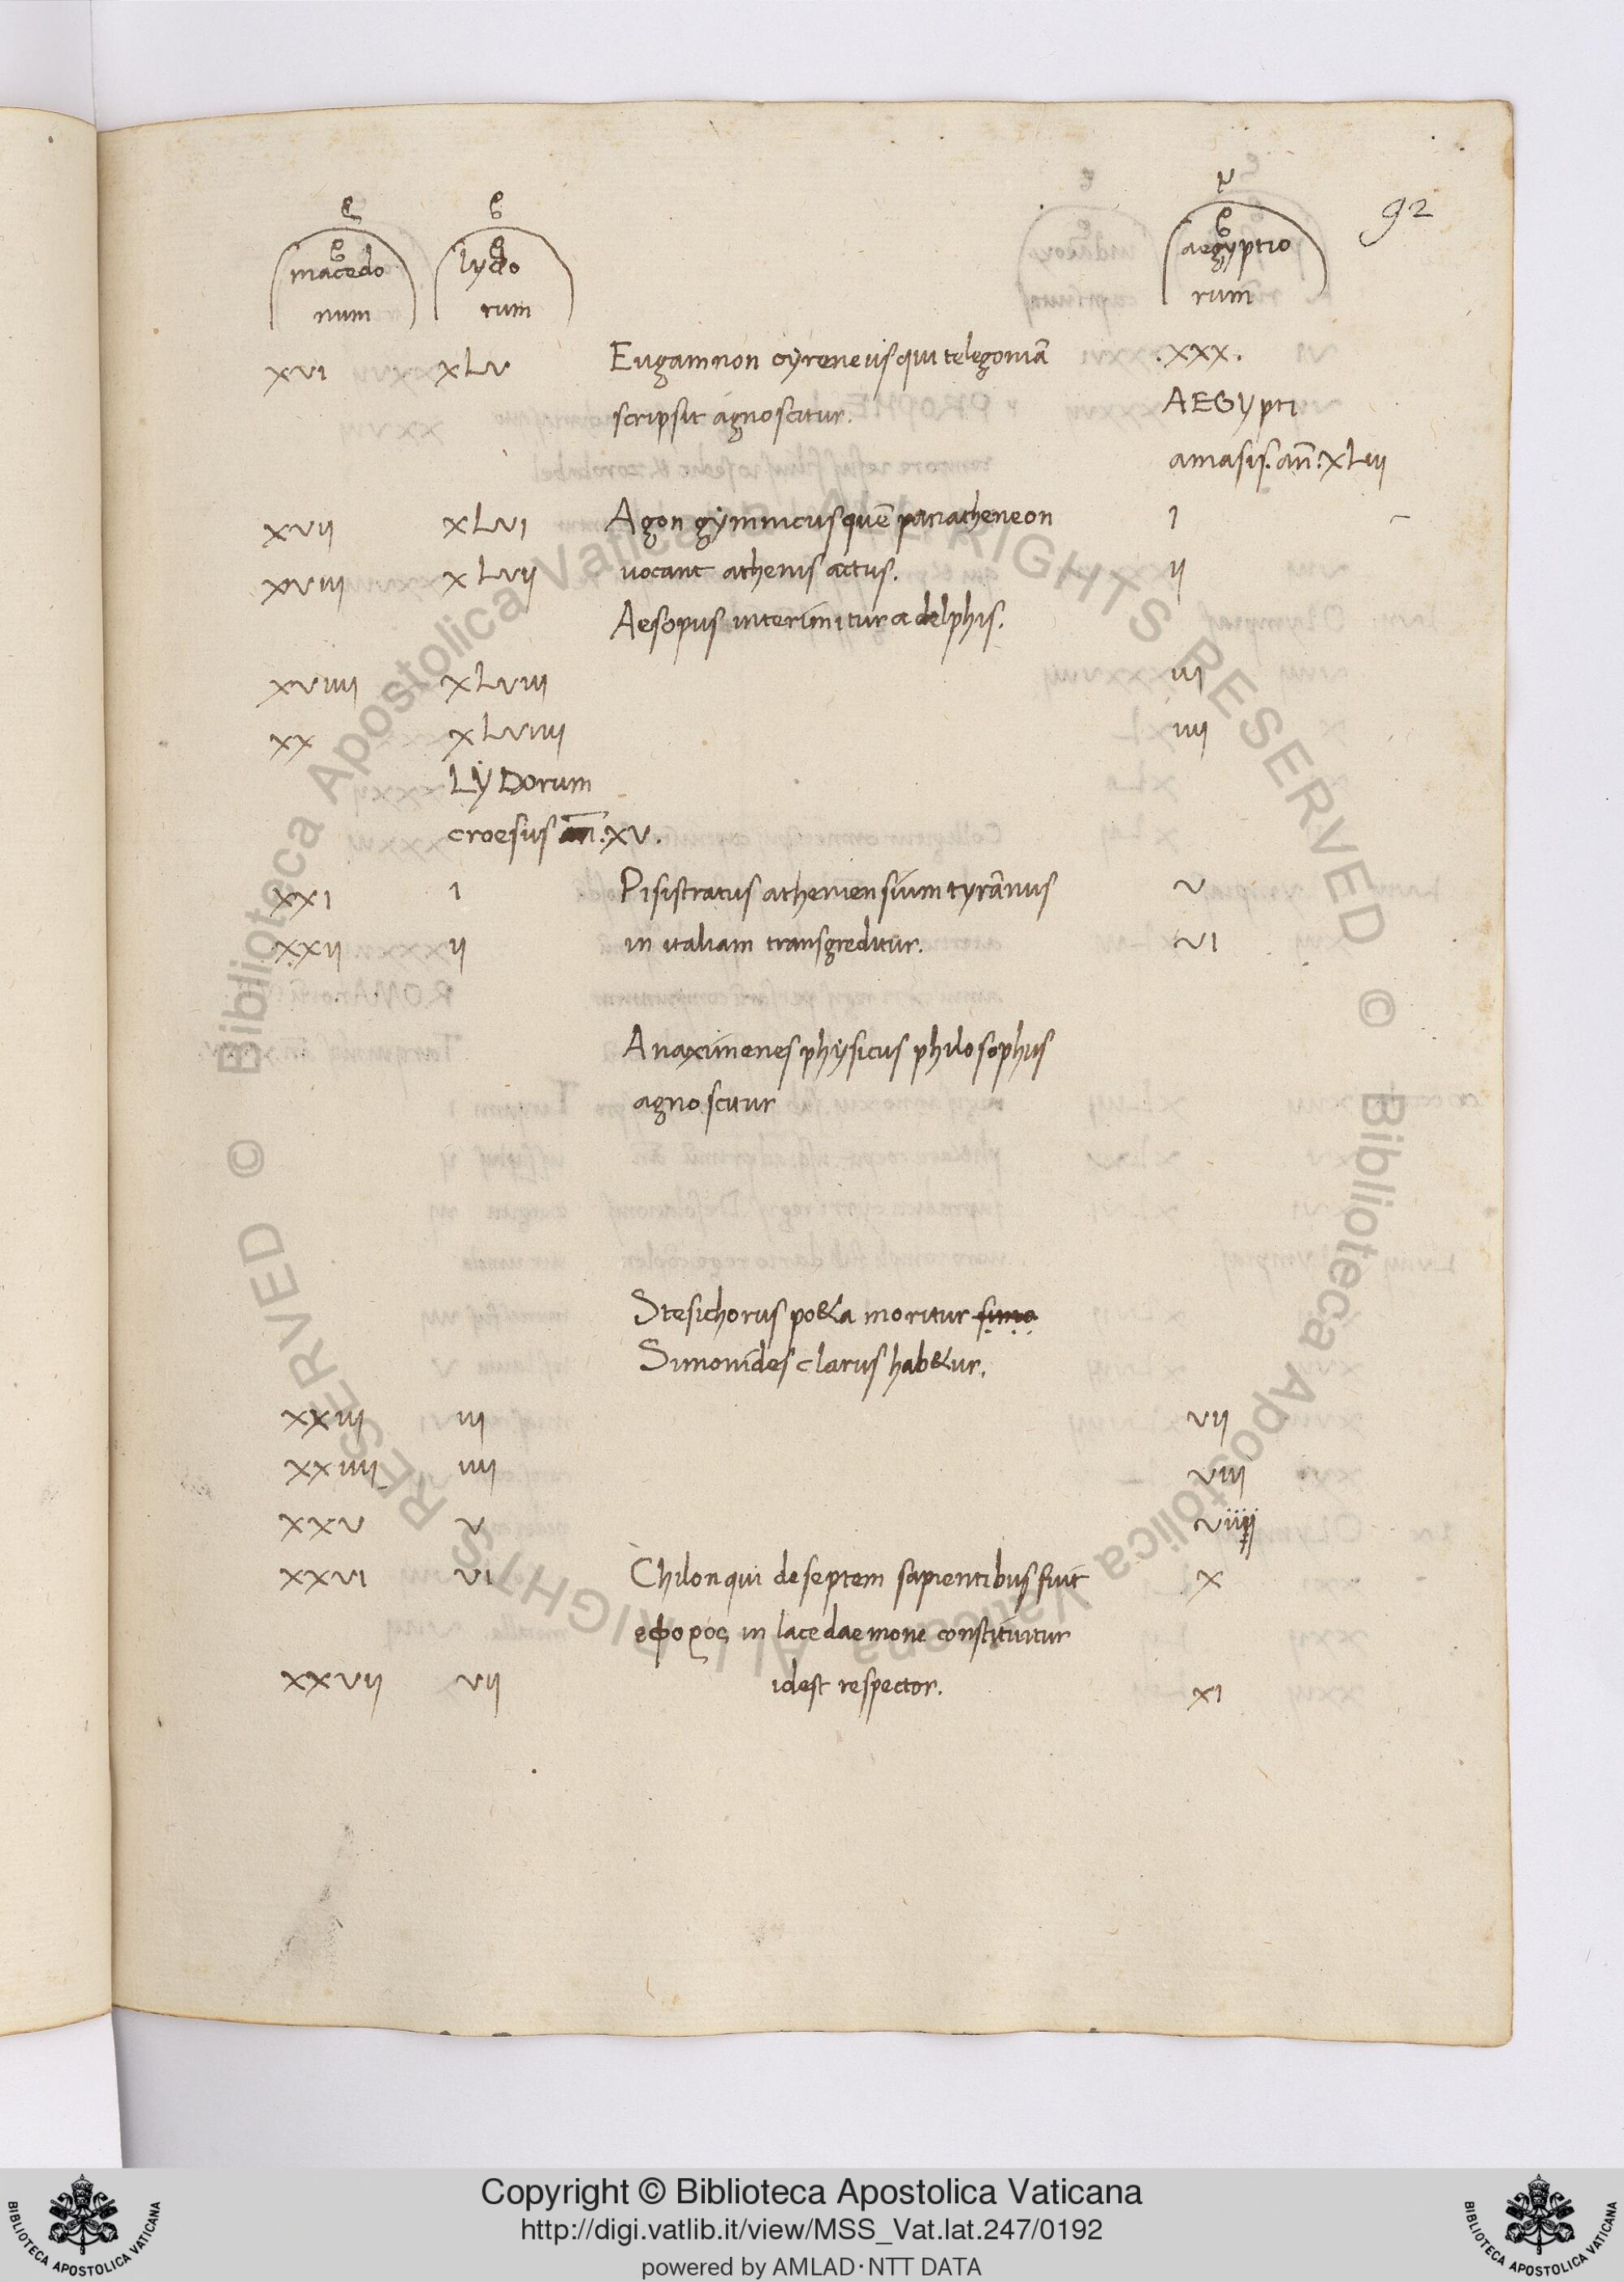 92
macedo lydo aegyptio
num rum rum
xvi xLv Eugamnon cyreneus qui telegoniā .xxx.
scripsit agnoscitur. AEGypti
amasis. an̄. xLii
xvii xLvi Agon gymnicus quē panatheneon i
xviii xLvii vocant athenis actus. ii
Aesopus interimitur a delphis.
xviiii xLviii iii
xx xLviiii iiii
LyDorum
croesus an̄. xv.
xxi i Pisistratus atheniensium tyrānus v
xxii ii in italiam transgreditur. vi
Anaximenes physicus philosophus
agnoscitur
Stesichorus po&a moritur simo
Simonides clarus hab&ur.
xxiii iii vii
xxiiii iiii viii
xxv v viiii
xxvi vi Chilon qui de septem sapientibus fuit x
εφορος in lacedaemone constituitur
xxvii vii idest respector. xi
Biblioteca Apostolica Vaticana ALL RIGHTS RESERVED ©
Biblioteca Apostolica Vaticana ALL RIGHTS RESERVED ©
Copyright © Biblioteca Apostolica Vaticana
http://digi.vatlib.it/view/MSS_Vat.lat.247/0192
powered by AMLAD·NTT DATA
BIBLIOTECA APOSTOLICA VATICANA
BIBLIOTECA APOSTOLICA VATICANA